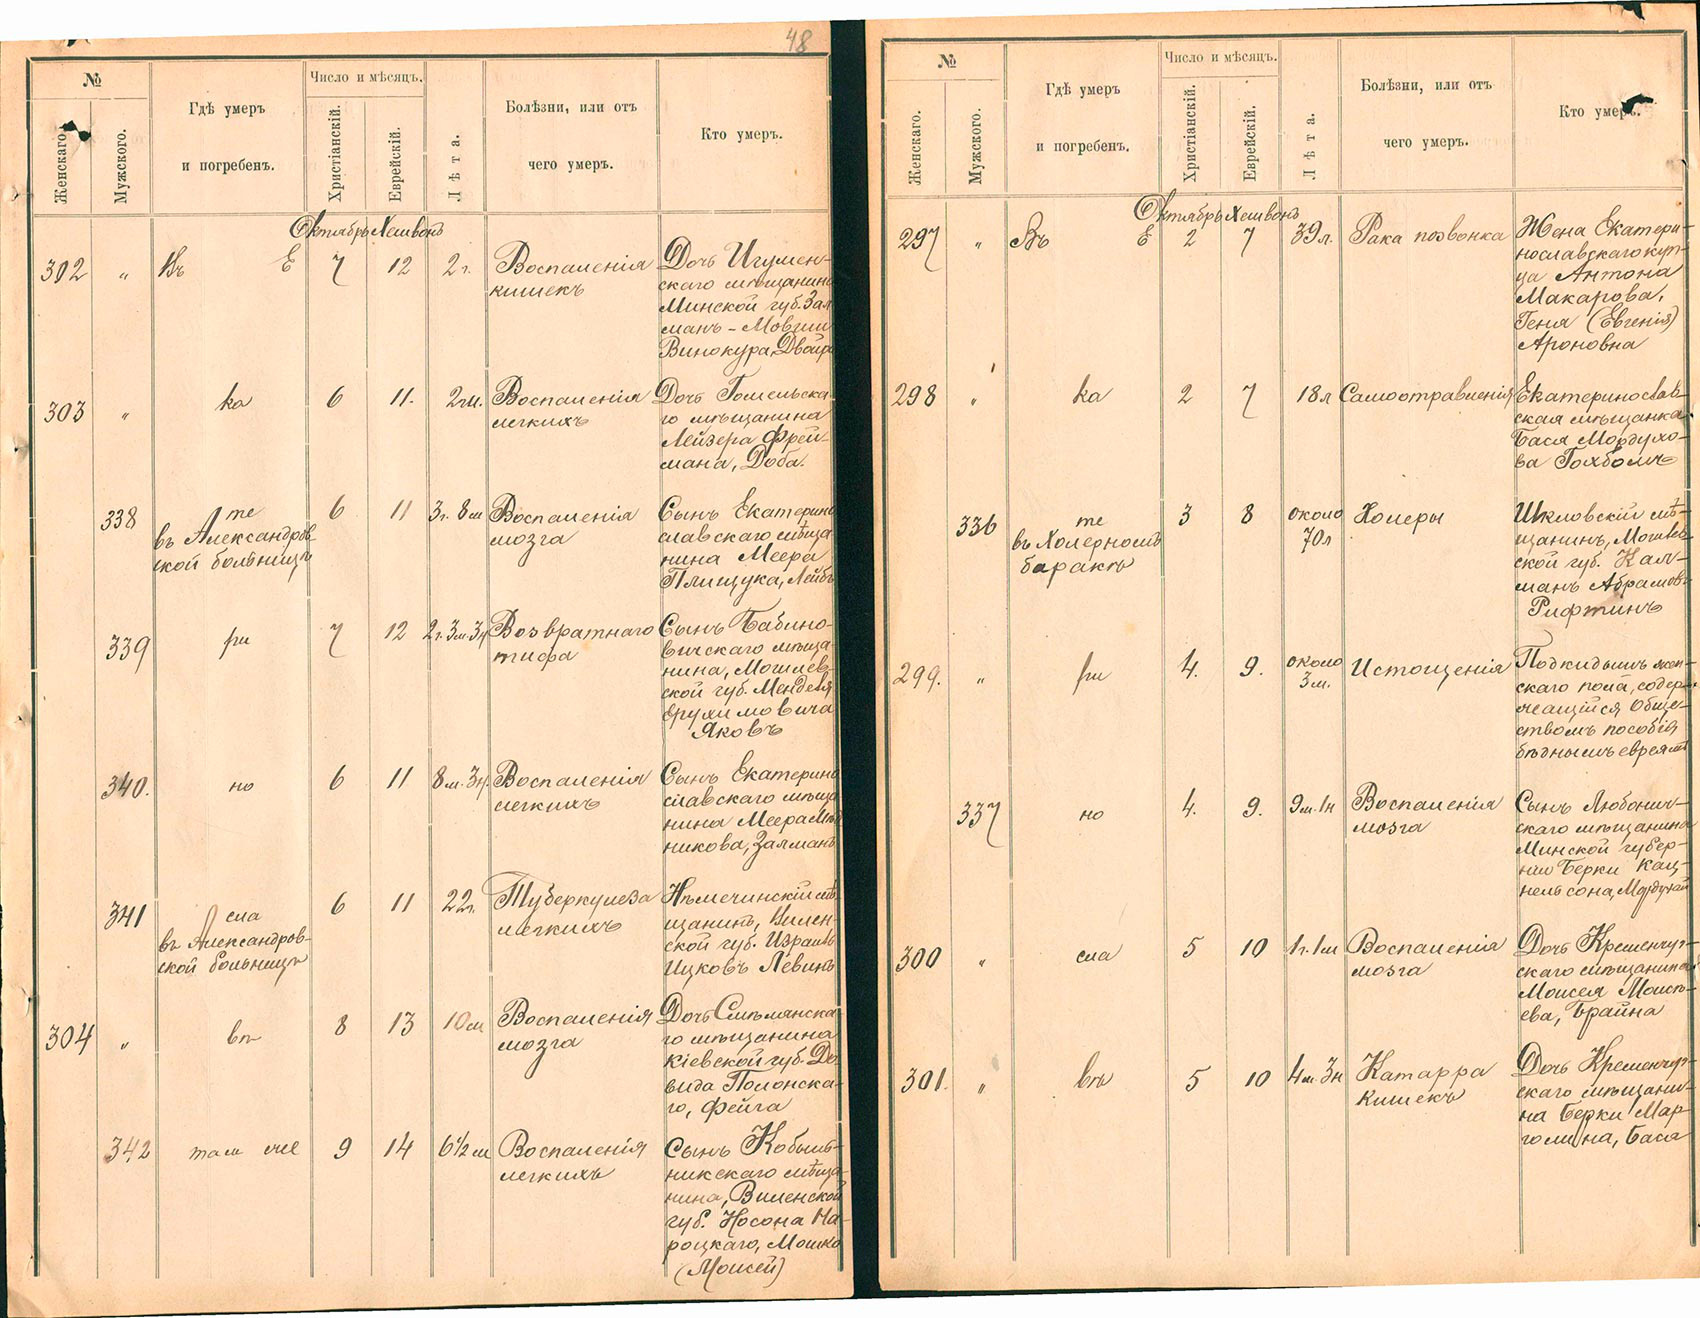 48
№
Число и мѣсяцъ.
Женскаго.
Мужского.
Гдѣ умеръ
и погребенъ.
Христіанскій.
Еврейскій.
Лѣта.
Болѣзни, или отъ
чего умеръ.
Кто умеръ.
Октябрь Хешвонъ
302 „ Въ Е 7 12 2 г. Воспаленія
кишекъ
Дочь Игумен-
скаго мѣщанина
Минской губ. Зал
манъ-Мовши
Винокура, Двойра
303 „ ка 6 11. 2 г. м. Воспаленія
легкихъ
Дочь Гомельска
го мѣщанина
Лейзера Фрей-
мана, Доба.
338 те
въ Александров
ской больницѣ
6 11 3 г. 8 м Воспаленія
мозга
Сынъ Екатерино
славскаго мѣща
нина Меера
Плищука, Лейбъ
339 ри 7 12 2 г. 3 м. 3 н Возвратнаго
тифа
Сынъ Бабино-
вичскаго мѣща
нина, Могилев
ской губ. Менделя
Ерухимовича
Яковъ
340. но 6 11 8 м. 3 н. Воспаленія
легкихъ
Сынъ Екатерино
славскаго мѣща
нина Меера
никова, Залманъ
341 сла
въ Александров-
ской больницѣ
6 11 22 г. Туберкулеза
легкихъ
Нѣмечинскій мѣ
щанинъ, Вилен-
ской губ. Израиль
Ицковъ Левинъ
304 „ въ 8 13 10 м Воспаленія
мозга
Дочь Смѣлянска
го мѣщанина
Кіевской губ. До
вида Полонска-
го, Фейга
342 там же 9 14 6 1/2 м Воспаленія
легкихъ
Сынъ Кобыль-
никскаго мѣща-
нина, Виленской
губ. Носона На-
роцкаго, Мошко
(Моисей)
№
Число и мѣсяцъ.
Женскаго.
Мужского.
Гдѣ умеръ
и погребенъ.
Христіанскій.
Еврейскій.
Лѣта.
Болѣзни, или отъ
чего умеръ.
Кто умеръ.
Октябрь Хешвонъ
297 „ Въ Е 2 7 39 л. Рака позвонка
Жена Екатери-
нославскаго куп-
ца Антона
Макарова,
Геня (Евгенія)
Ароновна
298 „ ка 2 7 18 л Самоотравленія
Екатеринослав-
ская мѣщанка
Бася Мордухо-
ва Гохбомъ
336 те
въ Холерномъ
баракѣ
3 8 около
70 л
Холеры
Шкловскій мѣ-
щанинъ, Могилев
ской губ. Кал-
манъ Абрамовъ
Рифтинъ
299. „ ри 4. 9. около
3 м.
Истощенія
Подкидышъ жен-
скаго пола, содер-
жащійся Обще-
ствомъ пособія
бѣднымъ евреямъ
337 но 4. 9. 9 м. 1 н Воспаленія
мозга
Сынъ Любонич-
скаго мѣщанина
Минской губер-
ніи Берки Кац-
нельсона, Мордухай
300 „ сла 5 10 1 г. 1 м Воспаленія
мозга
Дочь Кременчуг-
скаго мѣщанина
Моисея Моисѣ-
ева, Брайна
301. „ въ 5 10 4 м. 3 н Катарра
кишекъ
Дочь Кременчуг-
скаго мѣщани-
на Берки Мар-
голина, Бася